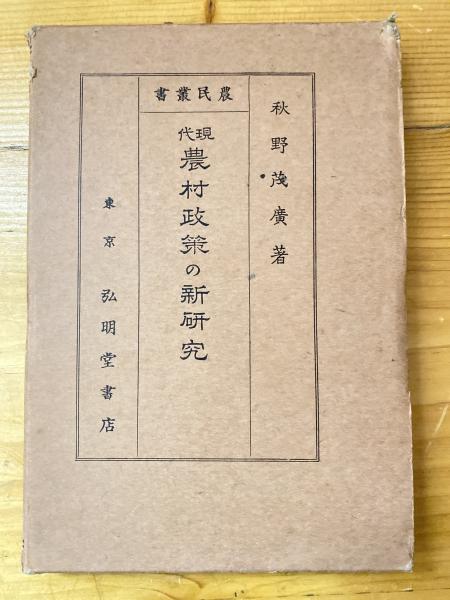 秋野茂廣著
農民叢書
現代
農村政策の新研究
東京 弘明堂書店